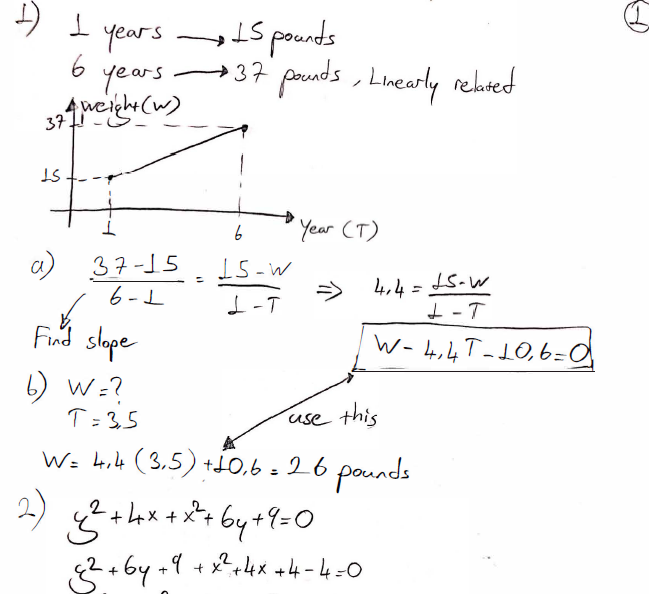 1) 1 years → 15 pounds
①
6 years → 37 pounds, Linearly related
weight (W)
37
15
1
6
Year (T)
a) 37-15 / 6-1 = 15-W / 1-T ⇒ 4,4 = 15-W / 1-T
Find slope
W - 4,4T - 10,6 = 0
b) W = ?
T = 3,5
use this
W = 4,4 (3,5) + 10,6 = 26 pounds
2) y² + 4x + x² + 6y + 9 = 0
y² + 6y + 9 + x² + 4x + 4 - 4 = 0